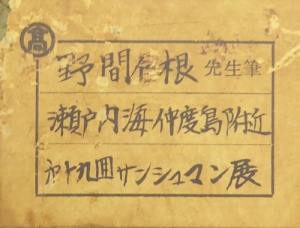 髙
野間仁根 先生筆
瀬戸内海仲度島附近
第十九囬サンシュマン展